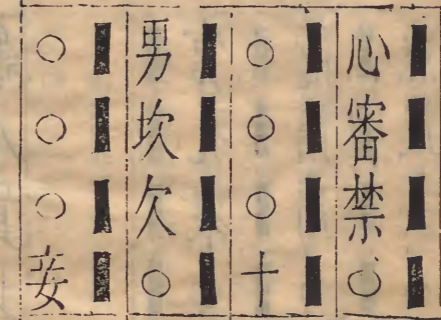 心審禁○
○○○十
男坎欠○
○○○妾